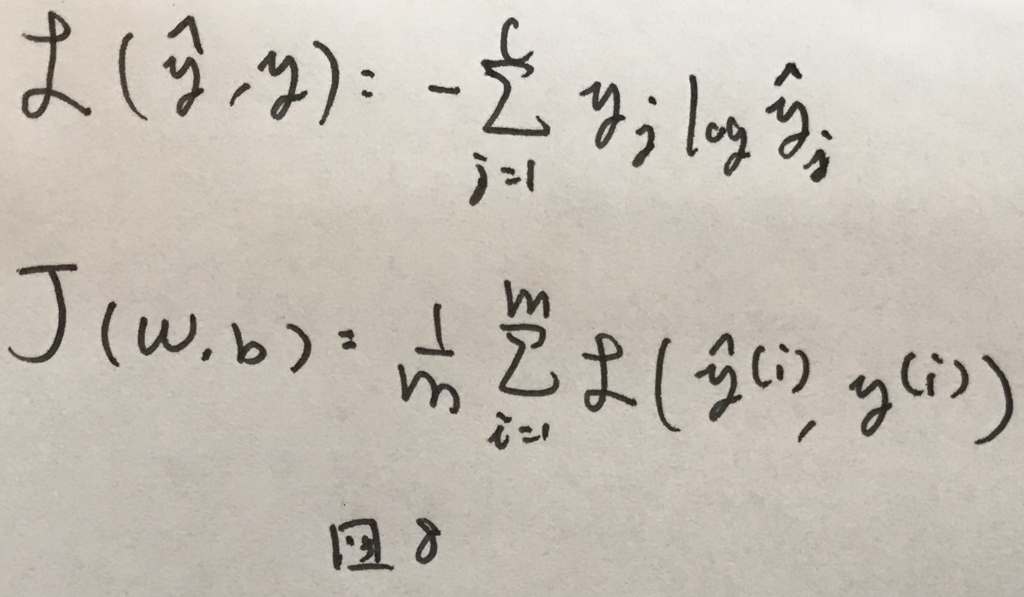 ℒ(ŷ, y) = -∑_{j=1}^{C} y_j log ŷ_j
J(w, b) = 1/m ∑_{i=1}^{m} ℒ(ŷ^{(i)}, y^{(i)})
图 8